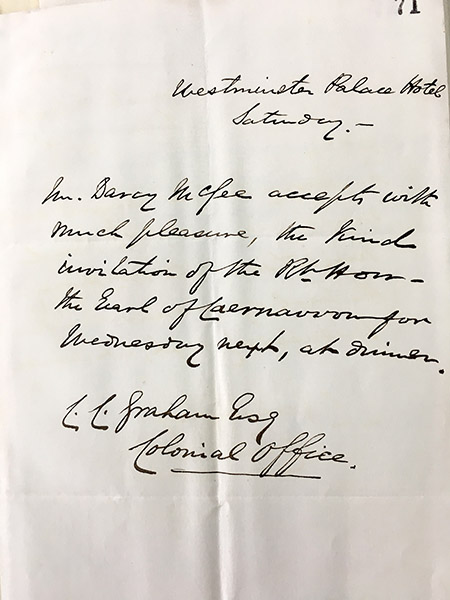 71
Westminster Palace Hotel
Saturday.—
Mr. Darcy McGee accepts with
much pleasure, the kind
invitation of the Rt. Hon—
the Earl of Caernarvon for
Wednesday next, at dinner.
C. C. Graham Esq
Colonial Office.